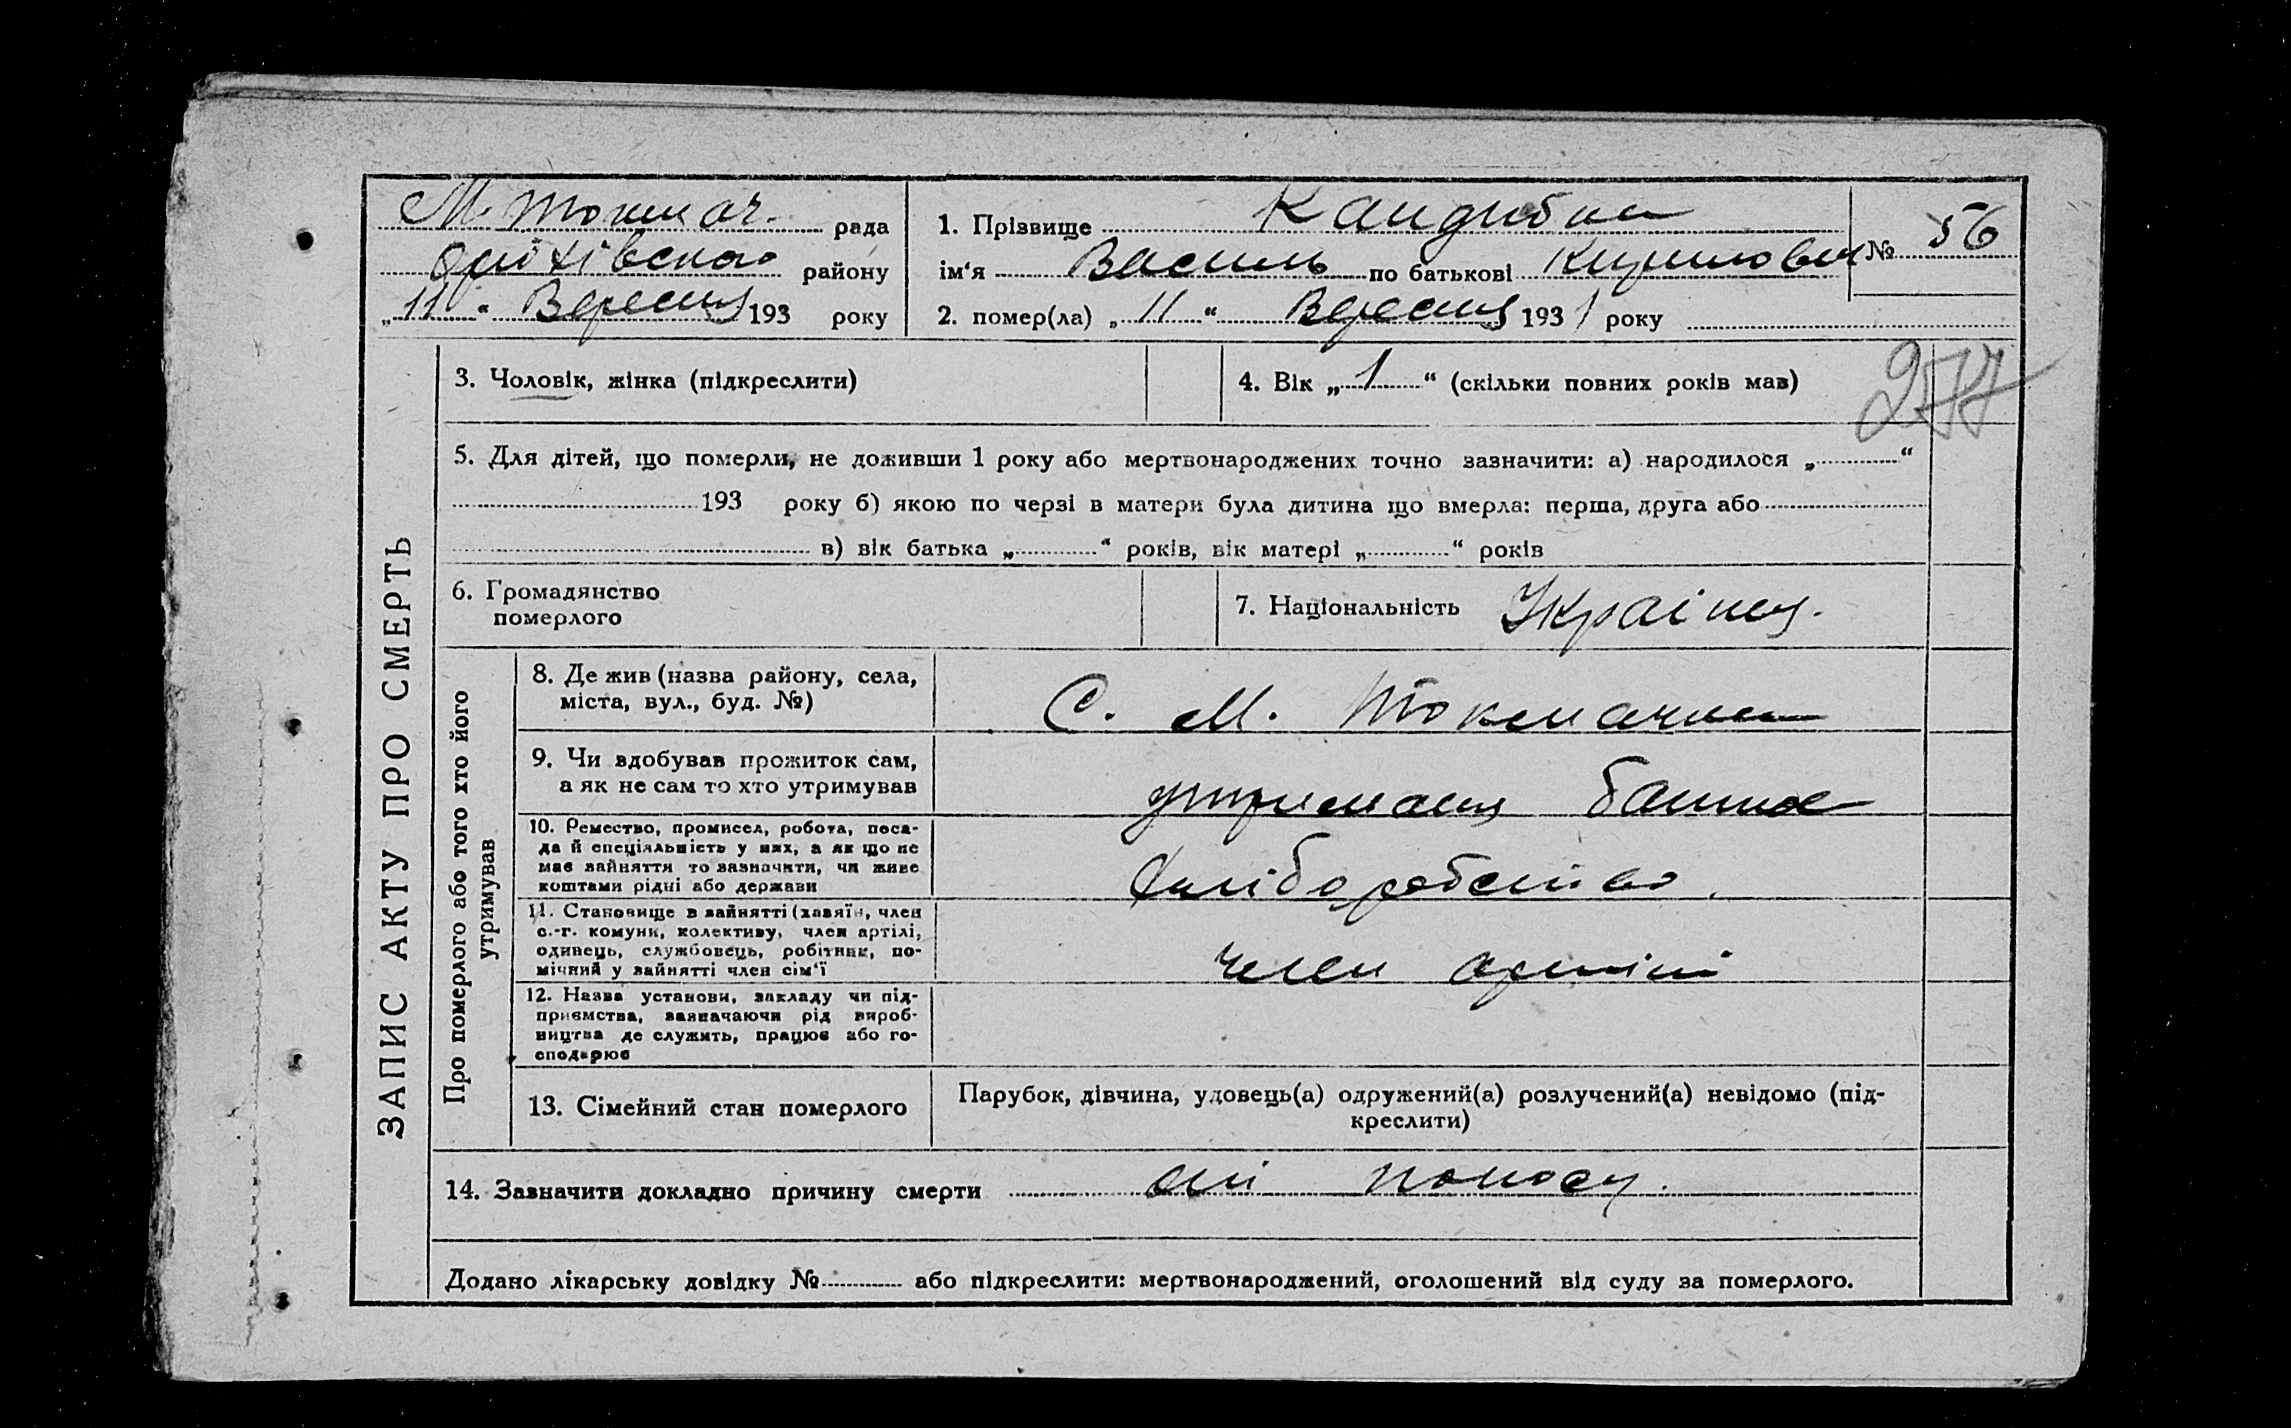 М. Токмач. рада
Оріхівського району
„11“ Вересня 193 року
1. Прізвище Кандиба
ім‘я Василь по батькові Кирилович
№ 56
2. помер(ла) „11“ Вересня 1931 року
277
ЗАПИС АКТУ ПРО СМЕРТЬ
3. Чоловік, жінка (підкреслити)
4. Вік „1“ (скільки повних років мав)
5. Для дітей, що померли, не доживши 1 року або мертвонароджених точно зазначити: а) народилося „ “
193 року б) якою по черзі в матери була дитина що вмерла: перша, друга або
в) вік батька „ “ років, вік матері „ “ років
6. Громадянство
померлого
7. Національність Українець.
Про померлого або того хто його
утримував
8. Де жив (назва району, села,
міста, вул., буд. №)
С. М. Токмачка
9. Чи вдобував прожиток сам,
а як не сам то хто утримував
утриманец батька
10. Ремество, промисел, робота, поса-
да й спеціяльність у них, а як що не
має зайняття то зазначити, чи живе
коштами рідні або держави
Хліборобство.
11. Становище в зайнятті (хазяїн, член
с.-г. комуни, колективу, член артілі,
одинець, службовець, робітник, по-
мічний у зайнятті член сім‘ї
член артілі
12. Назва установи, закладу чи під-
приємства, зазначаючи рід вироб-
ництва де служить, працює або го-
сподарює
13. Сімейний стан померлого
Парубок, дівчина, удовець(а) одружений(а) розлучений(а) невідомо (під-
креслити)
14. Зазначити докладно причину смерти від поносу.
Додано лікарську довідку № або підкреслити: мертвонароджений, оголошений від суду за померлого.